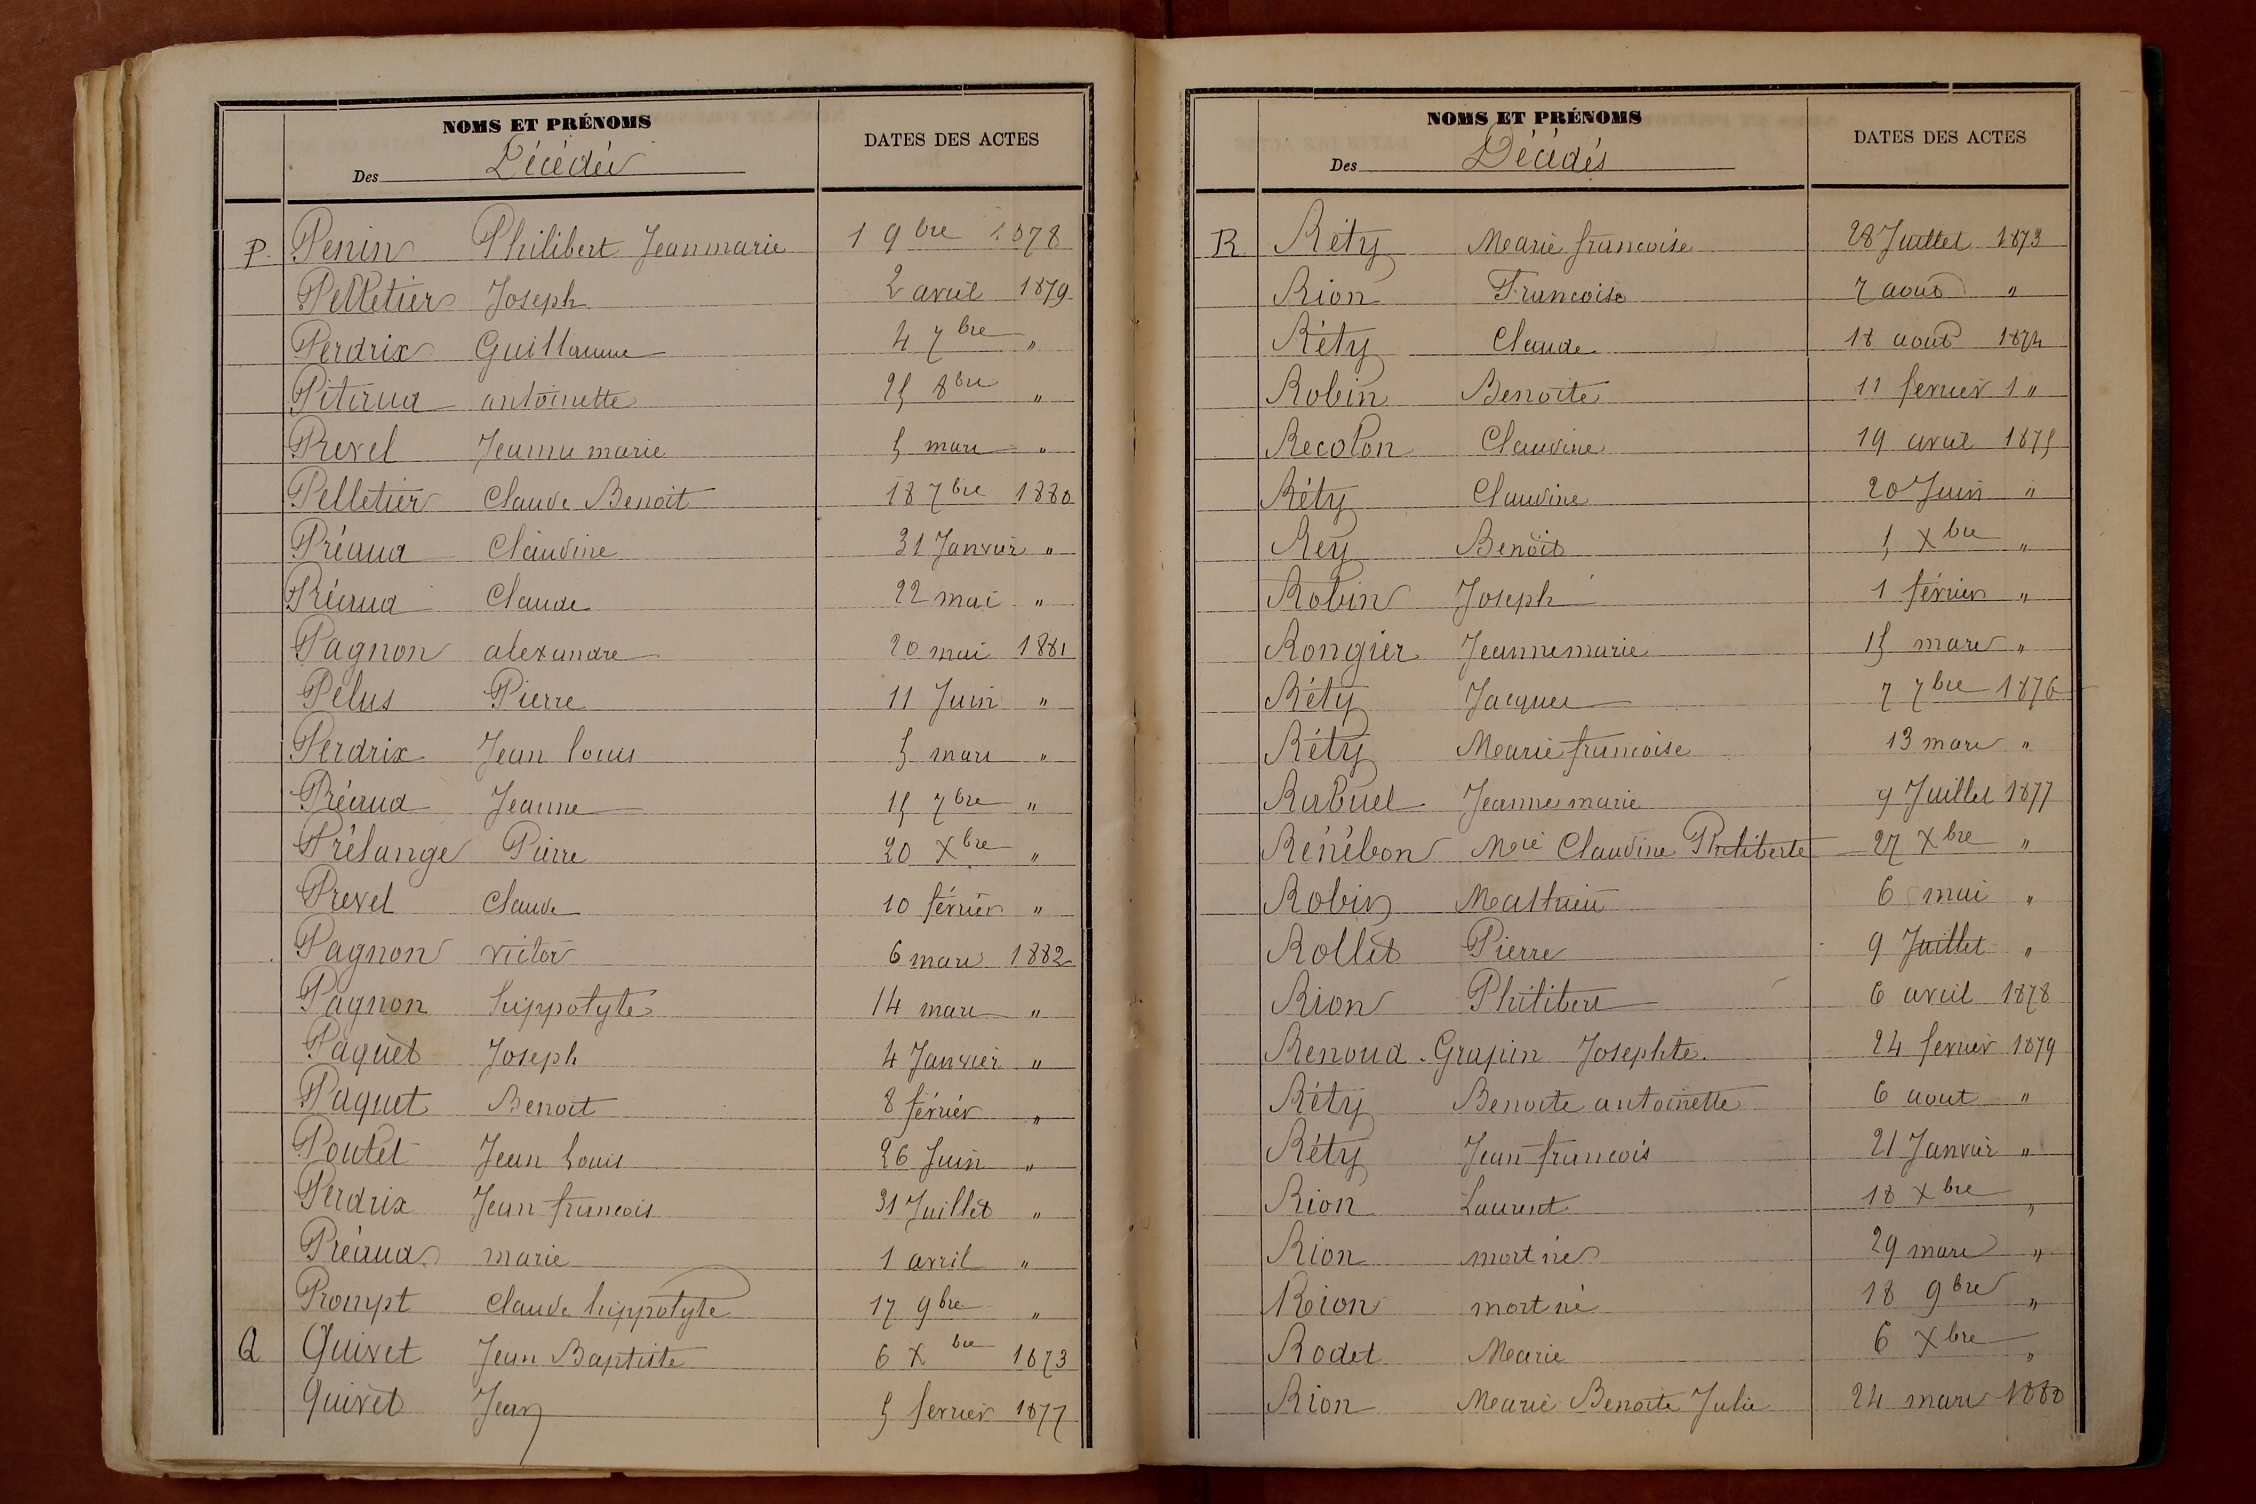 NOMS ET PRÉNOMS
DATES DES ACTES
Des Décédés
P. Penin Philibert Jeanmarie 1 9bre 1878
Pelletier Joseph 2 avril 1879
Perdrix Guillaume 4 7bre "
Pitiaud antoinette 25 8bre "
Prevel Jeanne marie 5 mars "
Pelletier Claude Benoit 18 7bre 1880
Préaud Claudine 31 Janvier "
Préaud Claude 22 mai "
Pagnon alexandre 20 mai 1881
Pelus Pierre 11 Juin "
Perdrix Jean louis 5 mars "
Préaud Jeanne 15 7bre "
Prélange Pierre 20 Xbre "
Prevel Claude 10 février "
Pagnon victor 6 mars 1882
Pagnon hippolyte 14 mars "
Paquet Joseph 4 Janvier "
Paquet Benoit 8 février "
Poutet Jean Louis 26 Juin "
Perdrix Jean francois 31 Juillet "
Préaud marie 1 avril "
Prompt Claude hippolyte 17 9bre "
Q Quivet Jean Baptiste 6 Xbre 1873
Quivet Jean 5 fevrier 1877
NOMS ET PRÉNOMS
DATES DES ACTES
Des Décédés
R Réty Marie francoise 28 Juillet 1873
Rion Francoise 7 aout "
Réty Claude 18 aout 1874
Robin Benoite 11 fevrier 1 "
Recolon Claudine 19 avril 1875
Réty Claudine 20 Juin "
Rey Benoit 5 Xbre "
Robin Joseph 1 février "
Rongier Jeannemarie 15 mars "
Réty Jacques 7 7bre 1876
Réty Marie francoise 13 mars "
Rabuel Jeanne marie 9 Juillet 1877
Rénébon Marie Claudine Philiberte 27 Xbre "
Robin Mathieu 6 mai "
Rollet Pierre 9 Juillet "
Rion Philibert 6 avril 1878
Renoud-Grapin Josephte 24 fevrier 1879
Réty Benoite antoinette 6 aout "
Réty Jean francois 21 Janvier "
Rion Laurent 18 Xbre "
Rion mort né 29 mars "
Rion mort né 18 9bre "
Rodet Marie 6 Xbre "
Rion Marie Benoite Julie 24 mars 1880